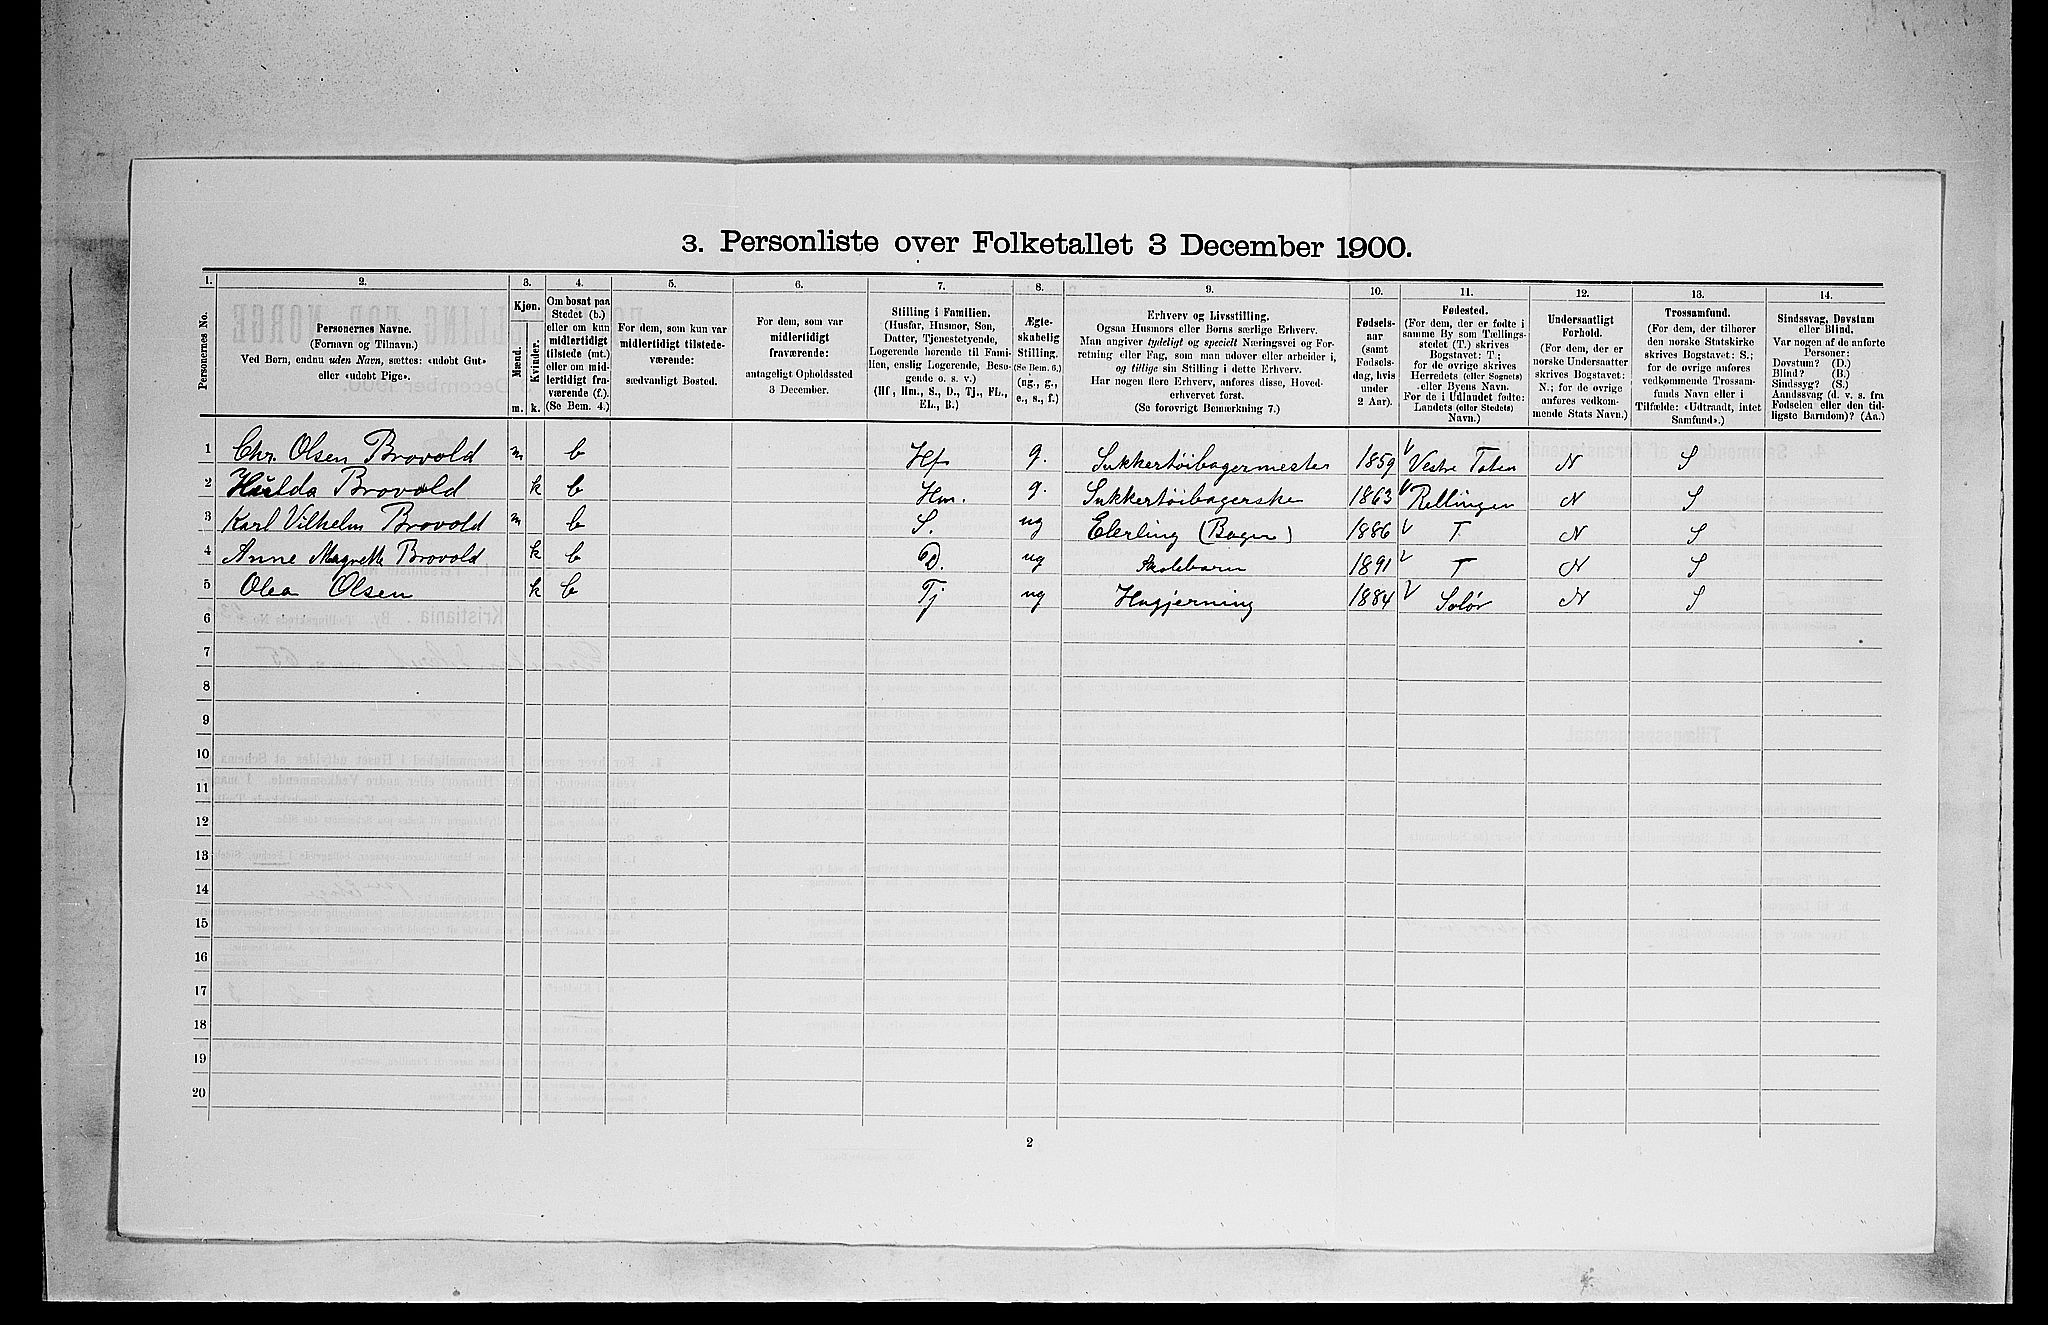 3. Personliste over Folketallet 3 December 1900.
1. 2. 3. 4. 5. 6. 7. 8. 9. 10. 11. 12. 13. 14.
Personernes No.
Personernes Navne.
(Fornavn og Tilnavn.)
Ved Børn, endnu uden Navn, sættes: «udøbt Gut»
eller «udøbt Pige».
Kjøn.
Mænd.
Kvinder.
m. k.
Om bosat paa
Stedet (b.)
eller om kun
midlertidigt
tilstede (mt.)
eller om mid-
lertidigt fra-
værende (f.).
(Se Bem. 4.)
For dem, som kun var
midlertidigt tilstede-
værende:
sædvanligt Bosted.
For dem, som var
midlertidigt
fraværende:
antageligt Opholdssted
3 December.
Stilling i Familien.
(Husfar, Husmor, Søn,
Datter, Tjenestetyende,
Logerende hørende til Fami-
lien, enslig Logerende, Besø-
gende o. s. v.)
(Hf., Hm., S., D., Tj., FL.,
EL., B.)
Ægte-
skabelig
Stilling.
(Se Bem. 6.)
(ug., g.,
e., s., f.)
Erhverv og Livsstilling.
Ogsaa Husmors eller Børns særlige Erhverv.
Man angiver tydeligt og specielt Næringsvei og For-
retning eller Fag, som man udøver eller arbeider i,
og tillige sin Stilling i dette Erhverv.
Har nogen flere Erhverv, anføres disse, Hoved-
erhvervet først.
(Se forøvrigt Bemærkning 7.)
Fødsels-
aar
(samt
Fødsels-
dag, hvis
under
2 Aar).
Fødested.
(For dem, der er fødte i
samme By som Tællings-
stedet (T.) skrives
Bogstavet: T.;
for de øvrige skrives
Herredets (eller Sognets)
eller Byens Navn.
For de i Udlandet fødte:
Landets (eller Stedets)
Navn.)
Undersaatligt
Forhold.
(For dem, der er
norske Undersaatter
skrives Bogstavet:
N.; for de øvrige
anføres vedkom-
mende Stats Navn.)
Trossamfund.
(For dem, der tilhører
den norske Statskirke
skrives Bogstavet: S.;
for de øvrige anføres
vedkommende Trossam-
funds Navn eller i
Tilfælde: «Udtraadt, intet
Samfund».)
Sindssvag, Døvstum
eller Blind.
Var nogen af de anførte
Personer:
Døvstum? (D.)
Blind? (B.)
Sindssyg? (S.)
Aandssvag (d. v. s. fra
Fødselen eller den tid-
ligste Barndom)? (Aa.)
1 Chr. Olsen Brovold m b Hf g. Sukkertøibagermester 1859 Vestre Toten N S
2 Hulda Brovold k b Hm. g. Sukkertøibagerske 1863 Rellingen N S
3 Karl Vilhelm Brovold m b S. ug (Bager) 1886 T N S
4 Anne Magrethe Brovold k b D. ug Skolebarn 1891 T N S
5 Olea Olsen k b Tj ug Husgjerning 1884 Solør N S
6
7
8
9
10
11
12
13
14
15
16
17
18
19
20
2